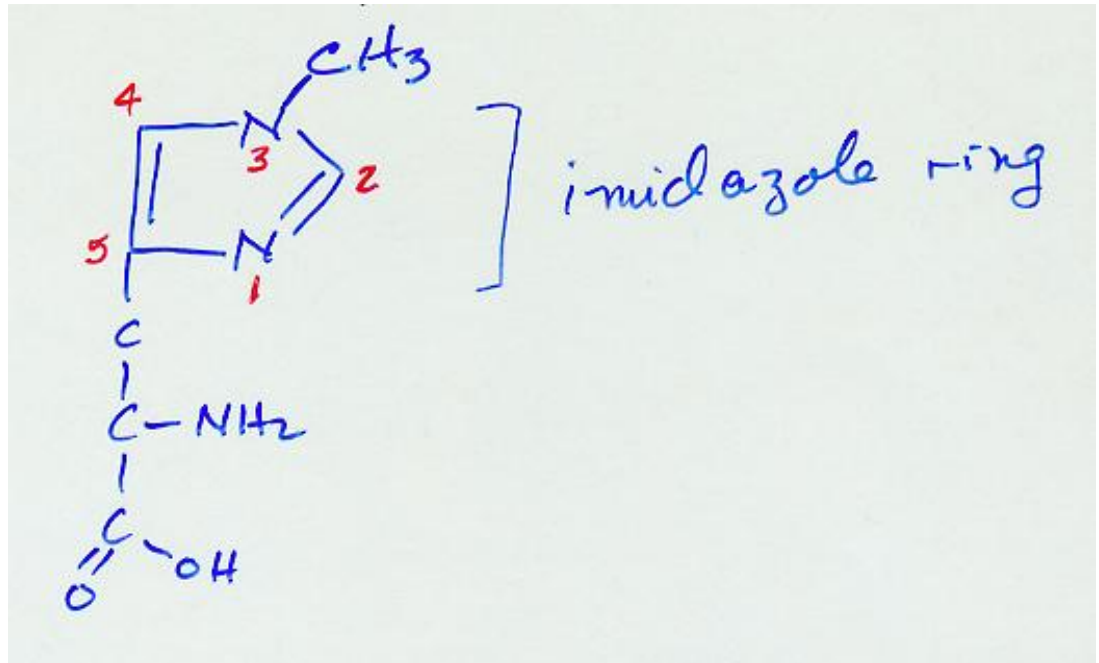 CH3
4
N
3
2
imidazole ring
5
N
1
C
C-NH2
C
OH
O